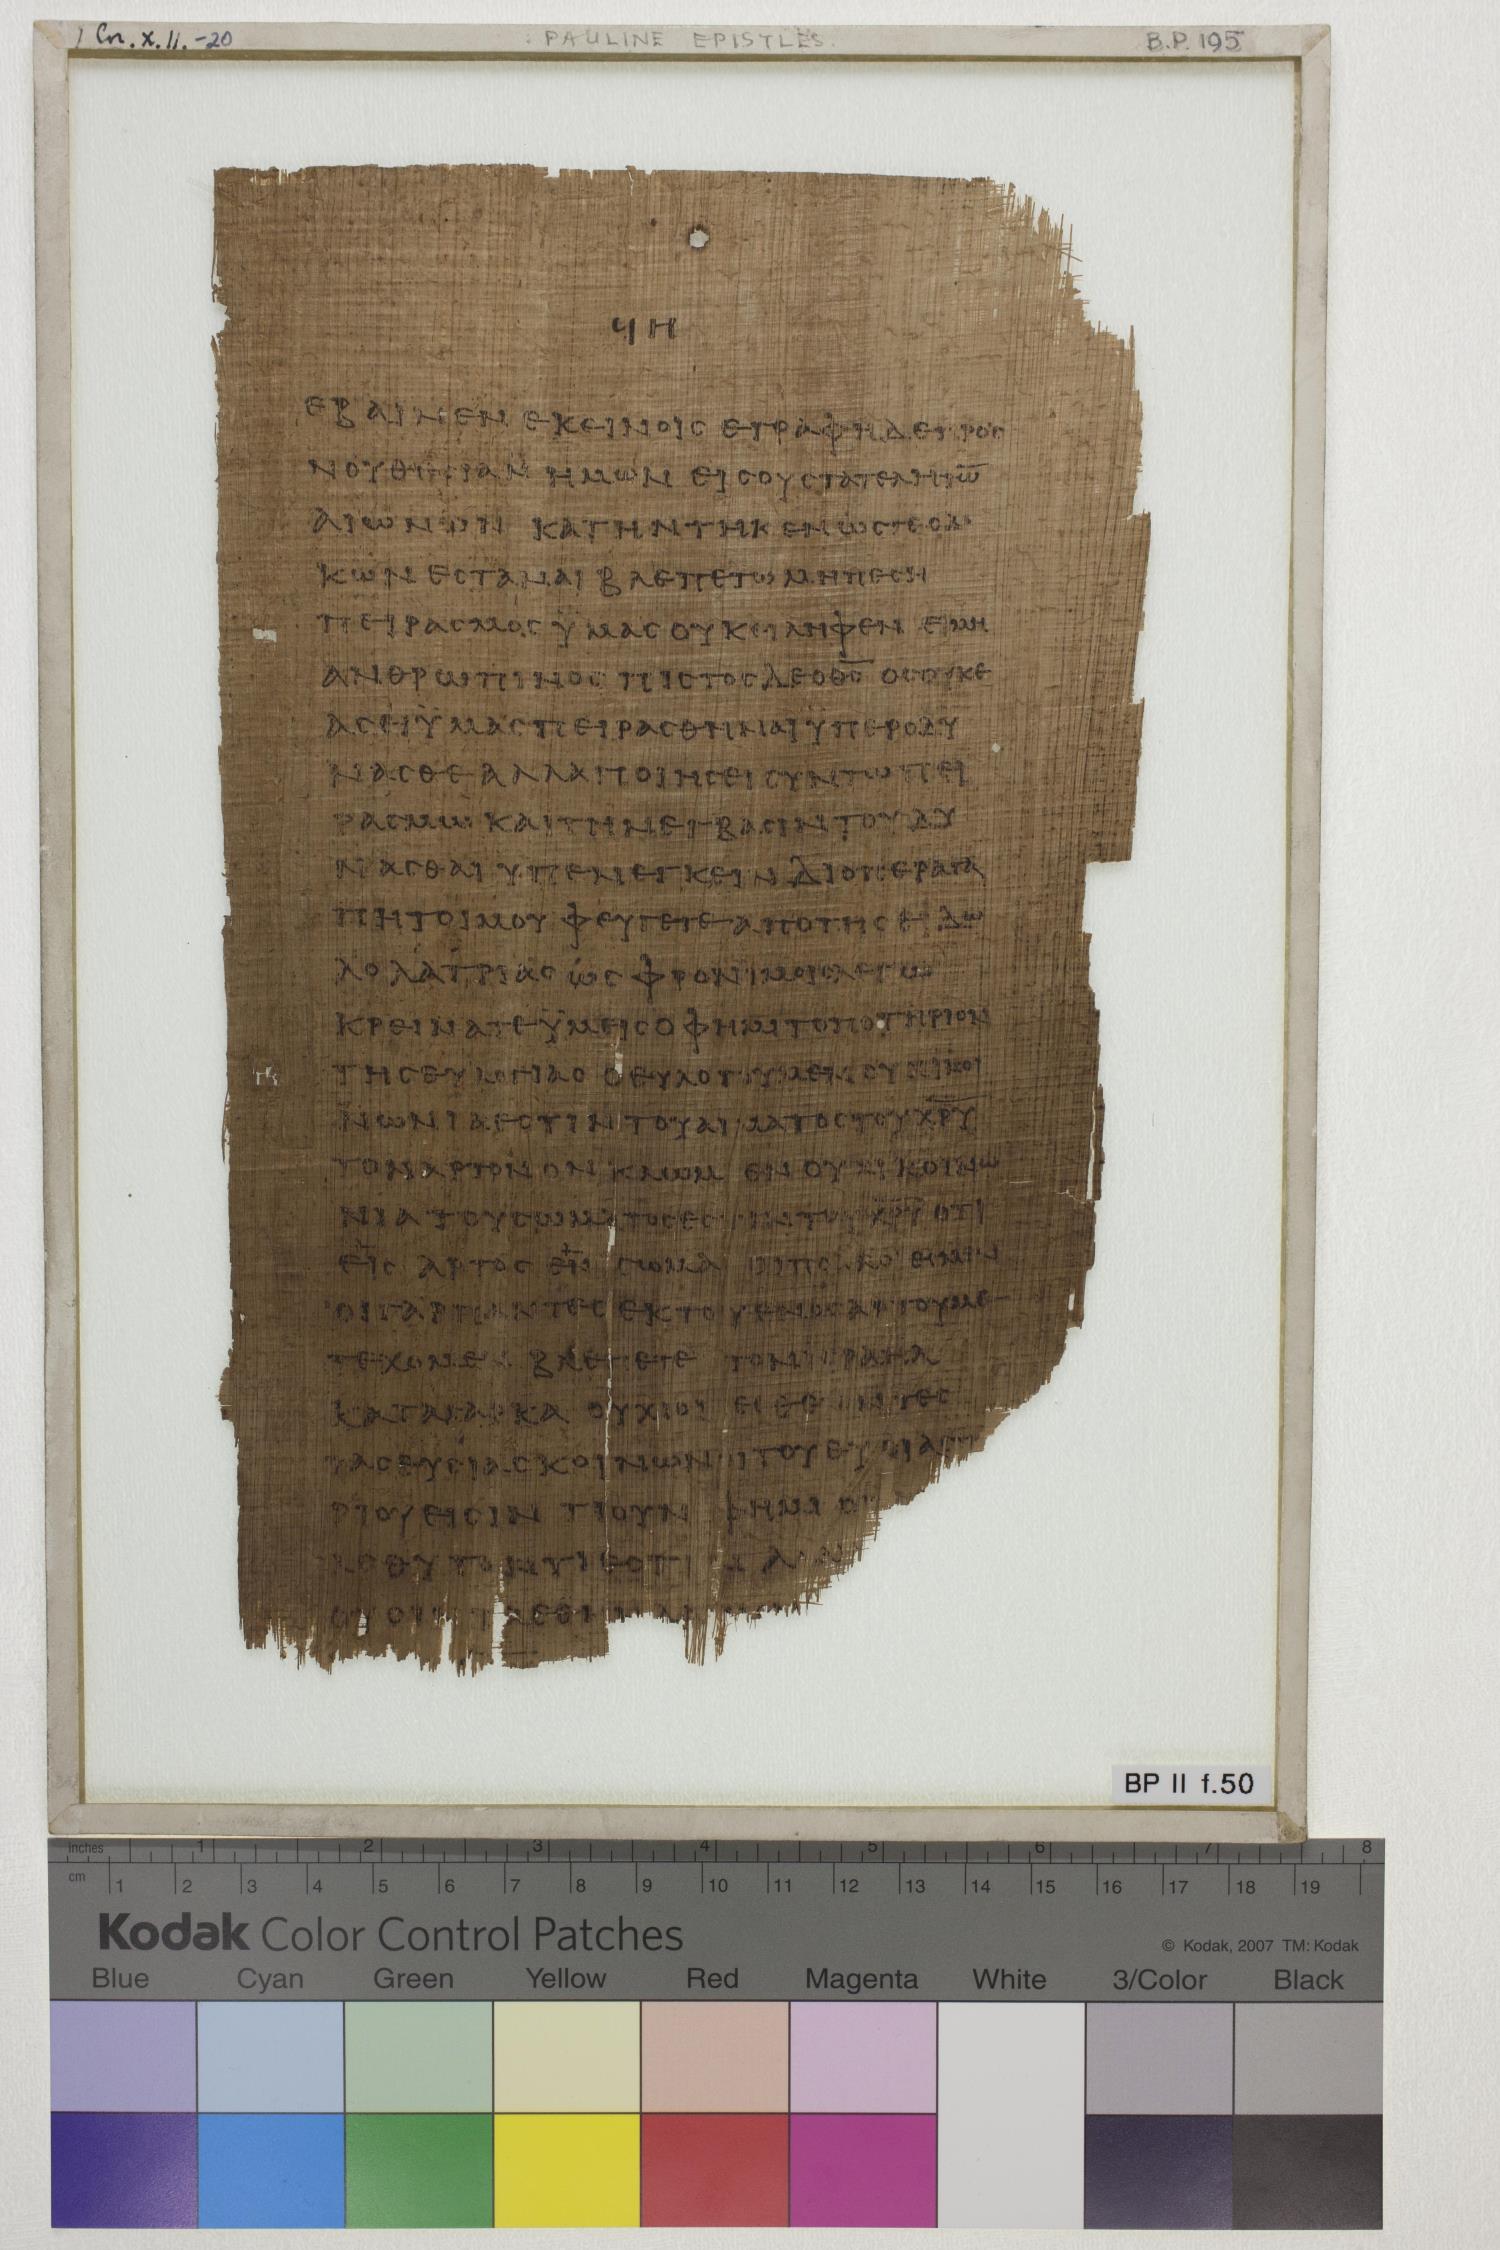 1 Cor. x. 11. -20
PAULINE EPISTLES.
B.P. 195
ϥη
εβαινεν εκεινοις εγραφη δε προς
νουθεσιαν ημων εις ους τα τελη τω̅
αιωνων κατηντηκεν ωστε ο δο
κων εσταναι βλεπετω μη πεση
πειρασμος ϋμας ουκ ειληφεν ει μη
ανθρωπινος πιστος δε ο θ̅ς̅ ος ουκ ε
ασει ϋμας πειρασθηναι ϋπερ ο δυ
νασθε αλλα ποιησει συν τω πει
ρασμω και την εγβασιν του δυ
νασθαι υπενεγκειν διοπερ αγα
πητοι μου φευγετε απο της ειδω
λολατριας ως φρονιμοις λεγω
κρεινατε ϋμεις ο φημι το ποτηριον
της ευλογιας ο ευλογουμεν ουχι κοι
νωνια εστιν του αιματος του χ̅ρ̅υ̅
τον αρτον ον κλωμεν ουχι κοινω
νια του σωματος εστιν του χ̅ρ̅υ̅ οτι
εις αρτος εν σωμα οι πολλοι εσμεν
οι γαρ παντες εκ του ενος αρτου με
τεχομεν βλεπετε τον ισραηλ
κατα σαρκα ουχι οι εσθιοντες
τας θυσιας κοινωνοι του θυσιαστη
ριου εισιν τι ουν φημι
λοθυτον τι εστιν
θυουσιν τα εθνη
BP II f.50
inches 1 2 3 4 5 6 7 8
cm 1 2 3 4 5 6 7 8 9 10 11 12 13 14 15 16 17 18 19
Kodak Color Control Patches
© Kodak, 2007 TM: Kodak
Blue Cyan Green Yellow Red Magenta White 3/Color Black